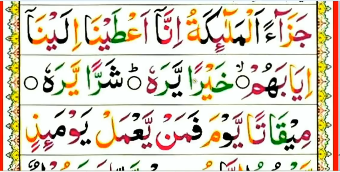 جَزَآءً الْمَلٰٓئِكَةُ اِنَّاۤ اَعْطَيْنَا اِلَيْنَاۤ
اِيَابَهُمْ ۙ خَيْرًا يَّرَهٗ ؕ شَرًّا يَّرَهٗ
مِيْقَاتًا يَّوْمَ فَمَنْ يَّعْمَلْ يَوْمَئِذٍ